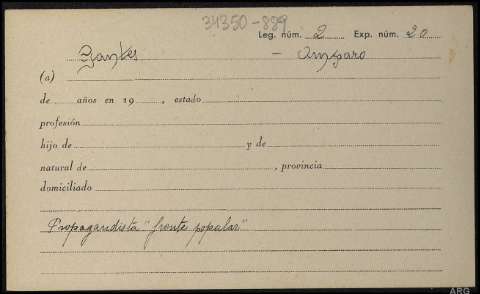 34350-889
Leg. núm. 2 Exp. núm. 20
Zankes - Amparo
(a)
de años en 19 , estado
profesión
hijo de y de
natural de , provincia
domiciliado
Propagandista "frente popular"
ARG